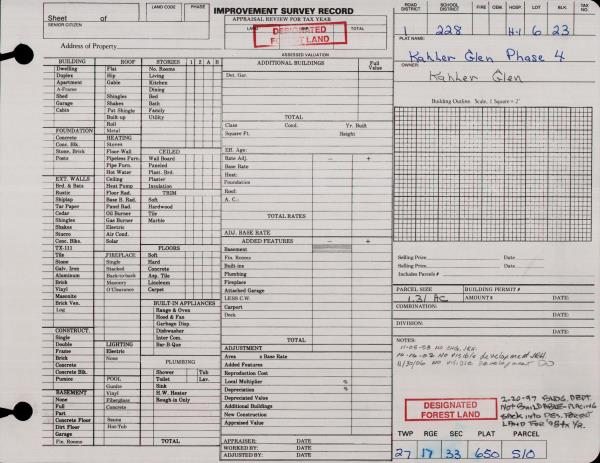 IMPROVEMENT SURVEY RECORD
Sheet of
SENIOR CITIZEN
LAND CODE
PHASE
APPRAISAL REVIEW FOR TAX YEAR
LAND
TOTAL
DESIGNATED
FOREST LAND
ASSESSED VALUATION
Address of Property
ROAD DISTRICT
SCHOOL DISTRICT
FIRE
CEM.
HOSP.
LOT
BLK.
TAX NO.
1 228 H-1 6 23
PLAT NAME:
Kahler Glen Phase 4
OWNER:
Kahler Glen
Building Outline Scale, 1 Square = 2'
BUILDING
Dwelling
Duplex
Apartment
A-Frame
Shed
Garage
Cabin
FOUNDATION
Concrete
Conc. Blk.
Stone, Brick
Posts
EXT. WALLS
Brd. & Bats
Rustic
Shiplap
Tar Paper
Cedar
Shingles
Shakes
Stucco
Conc. Blks.
TX-111
Tile
Stone
Galv. Iron
Aluminum
Brick
Vinyl
Masonite
Brick Ven.
Log
CONSTRUCT.
Single
Double
Frame
Brick
Concrete
Concrete Blk.
Pumice
BASEMENT
None
Full
Part
Concrete Floor
Dirt Floor
Garage
Fin. Rooms
ROOF
Flat
Hip
Gable
Shingles
Shakes
Pat Shingle
Built-up
Roll
Metal
HEATING
Stoves
Floor-Wall
Pipeless Furn.
Pipe Furn.
Hot Water
Ceiling
Heat Pump
Floor Rad.
Base B. Rad.
Panel Rad.
Oil Burner
Gas Burner
Electric
Air Cond.
Solar
FIREPLACE
Single
Stacked
Back-to-back
Masonry
O'Clearance
LIGHTING
Electric
None
POOL
Gunite
Vinyl
Fiberglass
Concrete
Sauna
Hot Tub
STORIES 1 2 A B
No. Rooms
Living
Kitchen
Dining
Bed
Bath
Family
Utility
CEILED
Wall Board
Paneled
Plast. Brd.
Plaster
Insulation
TRIM
Soft
Hardwood
Tile
Marble
FLOORS
Soft
Hard
Concrete
Asp. Tile
Linoleum
Carpet
BUILT-IN APPLIANCES
Range & Oven
Hood & Fan
Garbage Disp.
Dishwasher
Inter Com.
Bar-B-Que
PLUMBING
Shower Tub
Toilet Lav.
Sink
H.W. Heater
Rough-in Only
TOTAL
ADDITIONAL BUILDINGS
Full Value
Det. Gar.
TOTAL
Class Cond. Yr. Built
Square Ft. Height
Eff. Age:
Rate Adj. − +
Base Rate
Heat:
Foundation
Roof:
A. C.:
TOTAL RATES
ADJ. BASE RATE
ADDED FEATURES − +
Basement
Fin. Rooms
Built-ins
Plumbing
Fireplace
Attached Garage
LESS C.W.
Carport
Deck
TOTAL
ADJUSTMENT
Area x Base Rate
Added Features
Reproduction Cost
Local Multiplier %
Depreciation %
Depreciated Value
Additional Buildings
New Construction
Appraised Value
APPRAISER: DATE
REVIEWED BY: DATE
ADJUSTED BY: DATE
Selling Price Date:
Selling Price Date:
Includes Parcels #
PARCEL SIZE
1.31 AC
BUILDING PERMIT #
AMOUNT $ DATE:
COMBINATION: DATE:
DIVISION: DATE:
NOTES:
No visible development
11/30/06 No visible development
DESIGNATED
FOREST LAND
2-20-97 BLDG. DEPT.
NOT BUILDABLE-PLACING
BACK INTO DES. FOREST
LAND FOR '98 TX YR.
TWP RGE SEC PLAT PARCEL
27 17 33 650 510